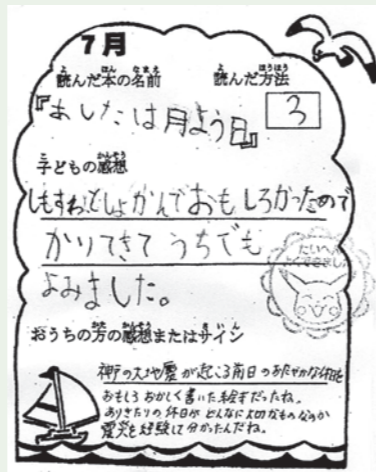 7月
読んだ本の名前 読んだ方法
『あしたは月よう日』 3
子どもの感想
しもすわとしょかんでおもしろかったので
かりてきて うちでも
よみました。
おうちの方の感想またはサイン
神戸の大地震が起こる前日のおだやかな休日を
おもしろおかしく書いた絵本だったね。
ありきたりの休日がどんなに大切なものなのか
震災を経験して分かったんだね。
たいへん
よくできました